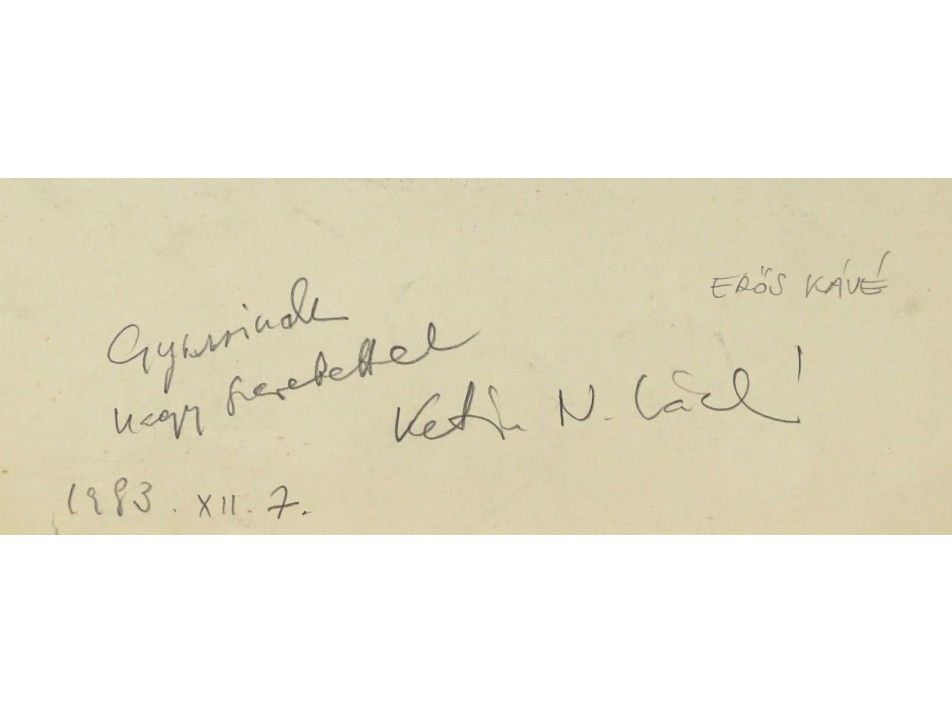 ERŐS KÁVÉ
Gyurinak
nagy szeretettel
N.
1983. XII. 7.